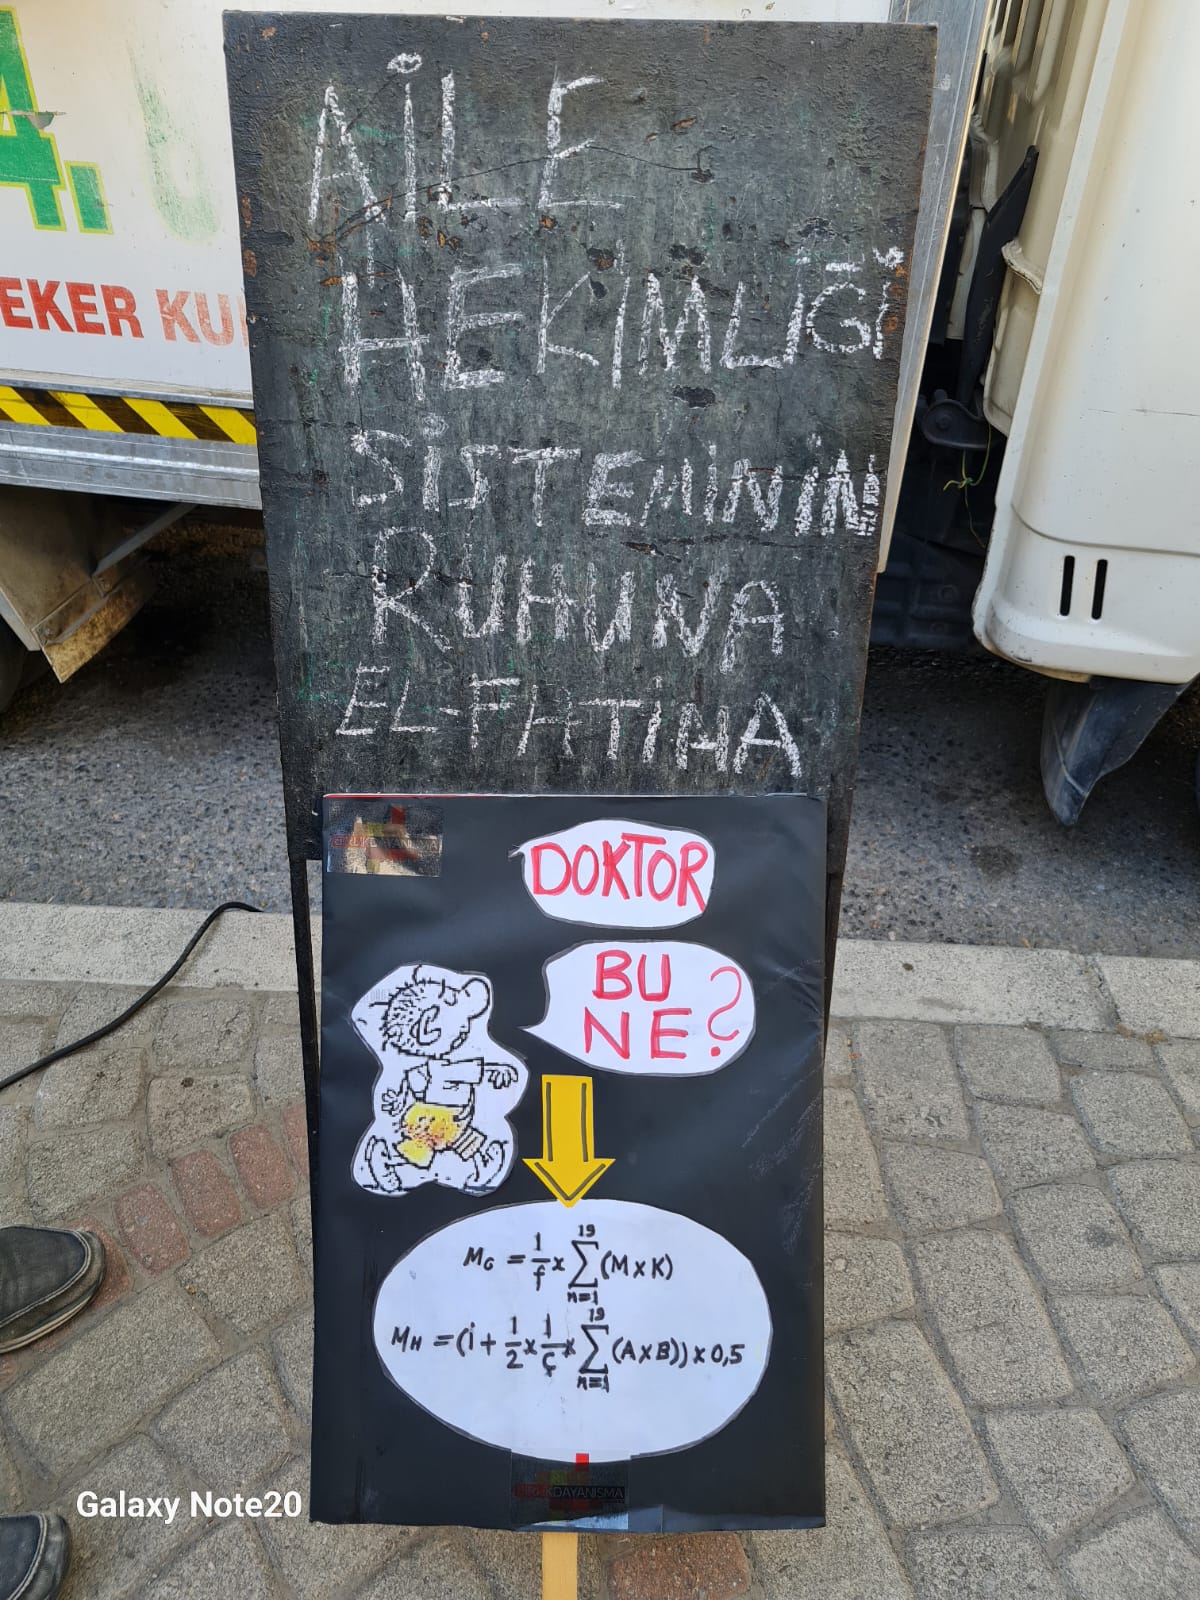 4.
EKER KU
AİLE
HEKİMLİĞİ
SİSTEMİNİN
RUHUNA
EL-FATİHA
DOKTOR
BU
NE?
M_G = 1/f x ∑_{n=1}^{19} (M x K)
M_H = (İ + 1/2 x 1/ç x ∑_{n=1}^{19} (A x B)) x 0,5
DAYANIŞMA
Galaxy Note20